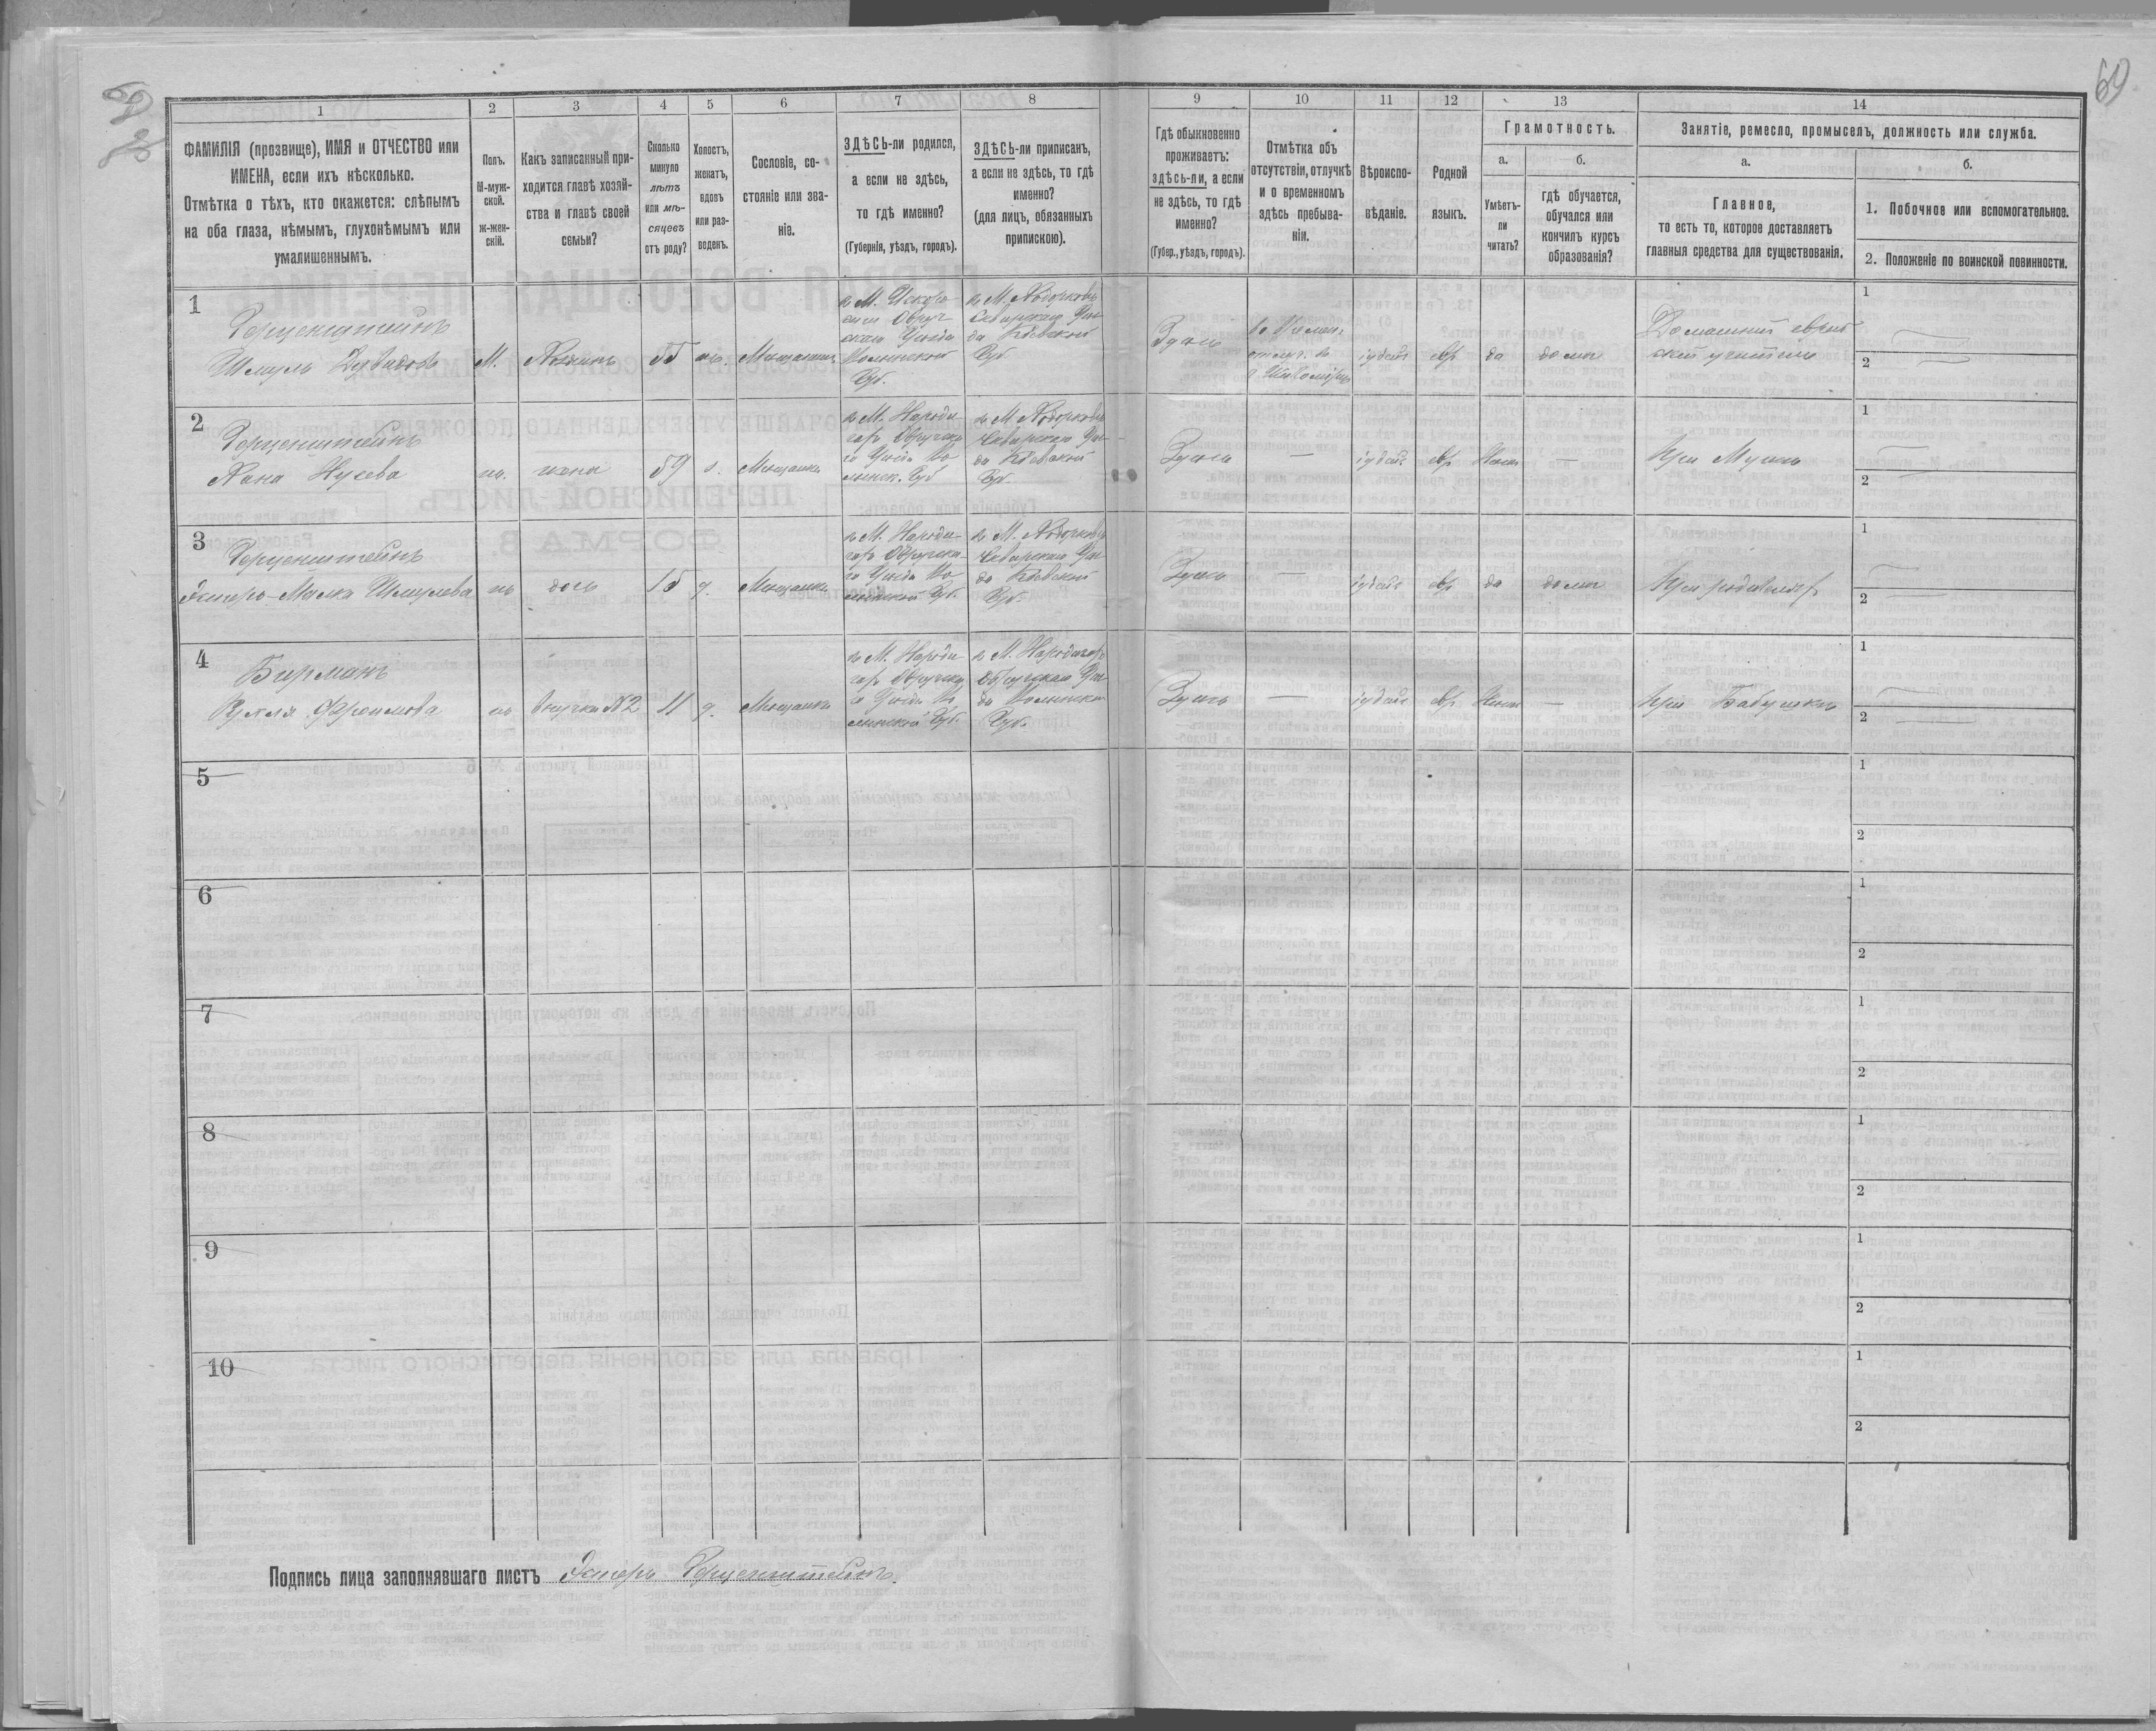 69
1
ФАМИЛІЯ (прозвище), ИМЯ и ОТЧЕСТВО или
ИМЕНА, если ихъ нѣсколько.
Отмѣтка о тѣхъ, кто окажется: слѣпымъ
на оба глаза, нѣмымъ, глухонѣмымъ или
умалишеннымъ.
2
Полъ.
М-муж-
ской.
ж-жен-
скій.
3
Какъ записанный при-
ходится главѣ хозяй-
ства и главѣ своей
семьи?
4
Сколько
минуло
лѣтъ
или мѣ-
сяцевъ
отъ роду?
5
Холостъ,
женатъ,
вдовъ
или раз-
веденъ.
6
Сословіе, со-
стояніе или зва-
ніе.
7
ЗДѢСЬ-ли родился,
а если не здѣсь,
то гдѣ именно?
(Губернія, уѣздъ, городъ).
8
ЗДѢСЬ-ли приписанъ,
а если не здѣсь, то гдѣ
именно?
(для лицъ, обязанныхъ
припискою).
9
Гдѣ обыкновенно
проживаетъ:
здѣсь-ли, а если
не здѣсь, то гдѣ
именно?
(Губер., уѣздъ, городъ).
10
Отмѣтка объ
отсутствіи, отлучкѣ
и о временномъ
здѣсь пребыва-
ніи.
11
Вѣроиспо-
вѣданіе.
12
Родной
языкъ.
13
Грамотность.
а.
Умѣетъ-
ли
читать?
б.
гдѣ обучается,
обучался или
кончилъ курсъ
образованія?
14
Занятіе, ремесло, промыселъ, должность или служба.
а.
Главное,
то есть то, которое доставляетъ
главныя средства для существованія.
б.
1. Побочное или вспомогательное.
2. Положеніе по воинской повинности.
1
Герценштейнъ
Шмуль
М.
Хозяинъ
55
Мѣщанинъ
въ М. Искоро-
сти Овруч-
скаго Уѣзда
Волынской
Губ.
въ М. Ходорковѣ
Сквирскаго Уѣз-
да Кіевской
Губ.
Здѣсь
іудейс
евр
да
дома
Домашній еврей-
скій учитель
1
2
2
Герценштейнъ
Хана Нусева
ж.
жена
59
з.
Мѣщанка
въ М. Народи-
чахъ Овручска-
го Уѣзда Во-
лынск. Губ
въ М. Ходорковѣ
Сквирскаго Уѣз-
да Кіевской
Губ.
Здѣсь
—
іудейс
евр
—
При Мужѣ
1
2
3
Герценштейнъ
Эстеръ-Малка Шмулева
ж
дочь
15
д.
Мѣщанка
въ М. Народи-
чахъ Овручска-
го Уѣзда Во-
лынской Губ.
въ М. Ходорковѣ
Сквирскаго Уѣз-
да Кіевской
Губ.
Здѣсь
—
іудейс
евр
да
дома
При родителяхъ
1
2
4
Бирманъ
Фроимова
ж
внучка №2
11
д.
Мѣщанка
въ М. Народи-
чахъ Овручска-
го Уѣзда Во-
лынской Губ.
въ М. Народичахъ
Овручскаго Уѣз-
да Волынской
Губ.
Здѣсь
—
іудейс
евр
—
При Бабушкѣ
1
2
5
1
2
6
1
2
7
1
2
8
1
2
9
1
2
10
1
2
Подпись лица заполнявшаго листъ Эстеръ Герценштейнъ.